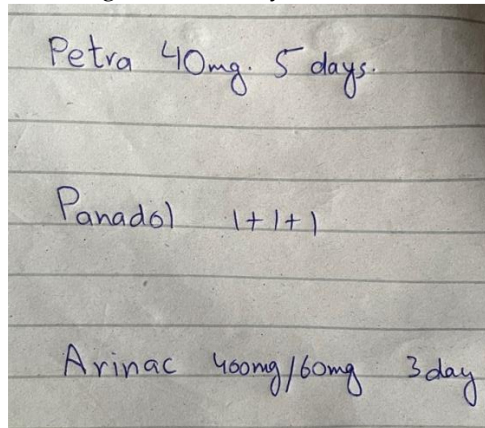 Petra 40mg. 5 days.
Panadol 1+1+1
Arinac 400mg/60mg 3 day